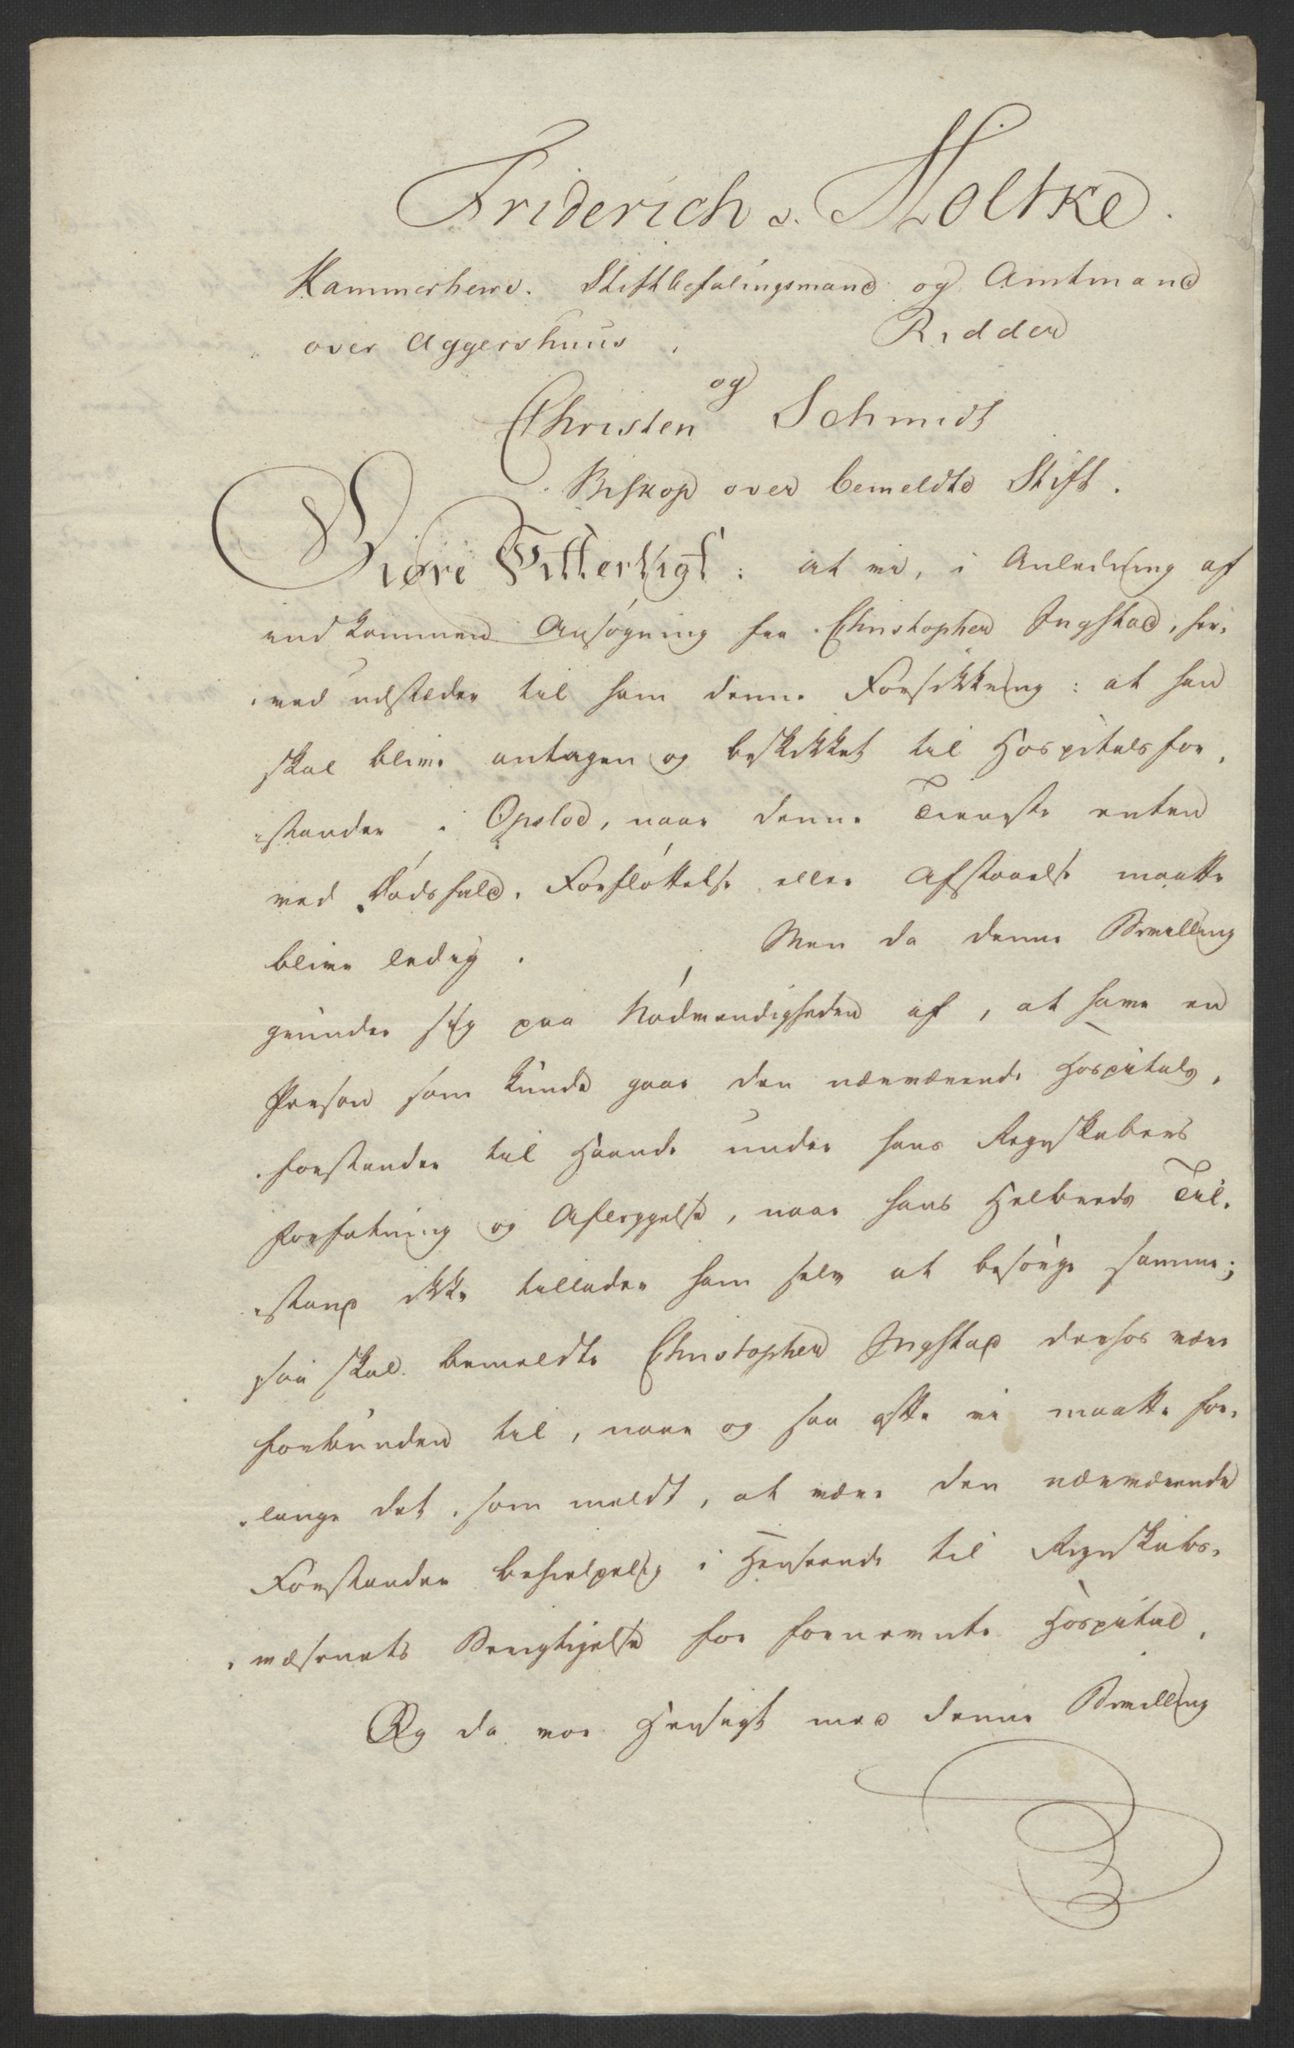 Friderich v. Moltke.
Kammerherre. Stiftbefalingsmand og Amtmand
over Aggershuus, Ridder
og
Christen Schmidt
Biskop over bemeldte Stift.
Giøre Vitterligt: at vi, i Anledning af
indkommen Ansøgning fra Christopher Ingstad, her-
-ved udstæder til ham denne Forsikkring: at han
skal blive antagen og beskikket til Hospitalsfor-
-stander i Opsloe, naar denne Tieneste enten
ved Dødsfald, Forfløttelse eller Afstaaelse maatte
blive ledig. Men da denne Bevilling
grunder sig paa Nødvendigheden af, at have en
Person som kunde gaae den nærværende Hospitals-
-forstander til Haande under hans Regnskabers
Forfatning og Aflæggelse, naar hans Helbreds Til-
-stand ikke tillader ham selv at besørge samme;
saa skal bemeldte Christopher Ingstad derhos være
forbunden til, naar og saa ofte vi maatte for-
-lange det, som meldt, at være den nærværende
Forstander behielpelig i Henseende til Regnskabs-
-væsenets Berigtigelse for fornevnte Hospital.
Og da vor Hensigt med denne Bevilling